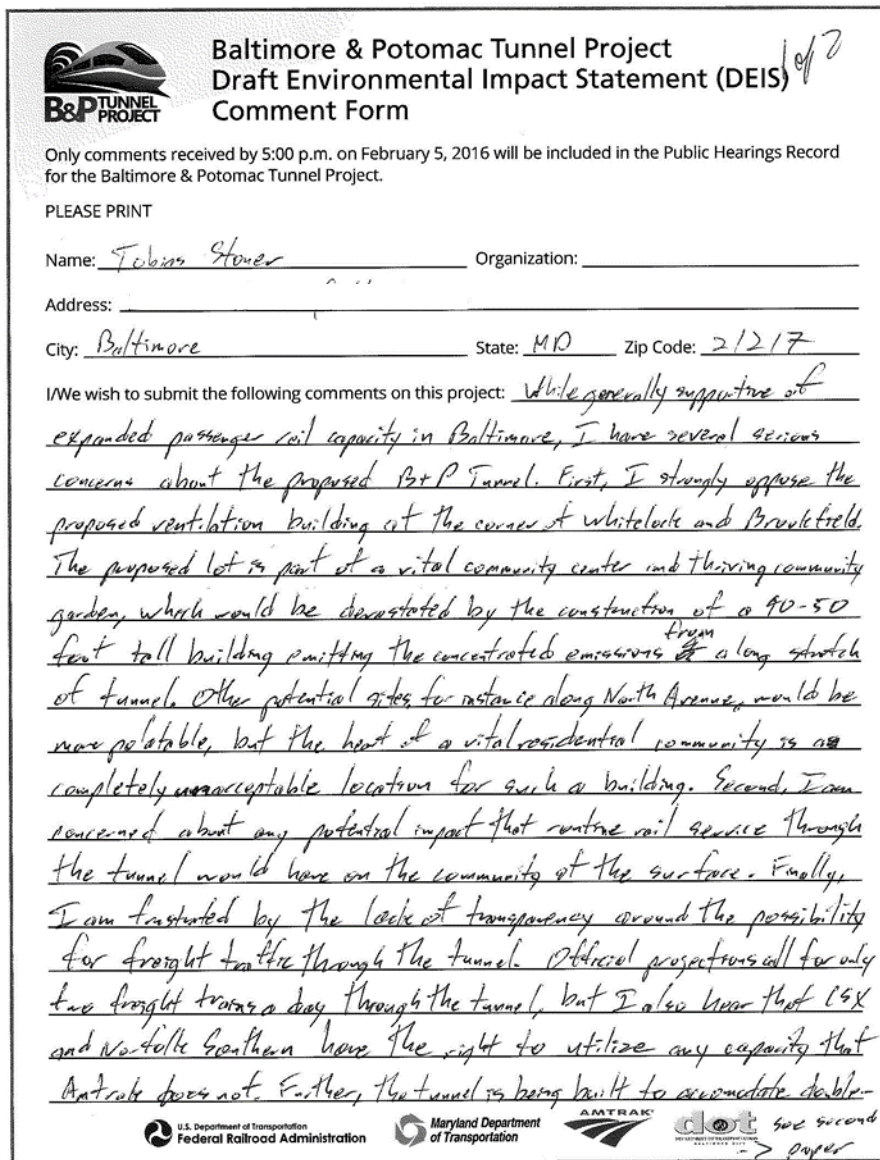 B&P TUNNEL PROJECT
Baltimore & Potomac Tunnel Project
Draft Environmental Impact Statement (DEIS)
Comment Form
1 of 2
Only comments received by 5:00 p.m. on February 5, 2016 will be included in the Public Hearings Record
for the Baltimore & Potomac Tunnel Project.
PLEASE PRINT
Name: Tobias Stoner Organization:
Address:
City: Baltimore State: MD Zip Code: 21217
I/We wish to submit the following comments on this project: While generally supportive of
expanded passenger rail capacity in Baltimore, I have several serious
concerns about the proposed B+P Tunnel. First, I strongly oppose the
proposed ventilation building at the corner of Whitelock and Brookfield.
The proposed lot is part of a vital community center and thriving community
garden, which would be devastated by the construction of a 40-50
foot tall building emitting the concentrated emissions from a long stretch
of tunnel. Other potential sites, for instance along North Avenue, would be
more palatable, but the heart of a vital residential community is a
completely unacceptable location for such a building. Second, I am
concerned about any potential impact that routine rail service through
the tunnel would have on the community at the surface. Finally,
I am frustrated by the lack of transparency around the possibility
for freight traffic through the tunnel. Official projections call for only
two freight trains a day through the tunnel, but I also hear that CSX
and Norfolk Southern have the right to utilize any capacity that
Amtrak does not. Further, the tunnel is being built to accomodate double-
U.S. Department of Transportation
Federal Railroad Administration
Maryland Department
of Transportation
AMTRAK
dot
see second
-> paper